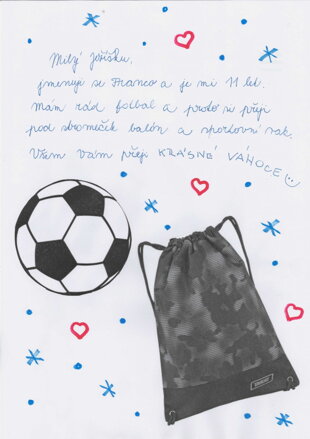 Milý Ježíšku,
jmenuji se Franco a je mi 11 let.
Mám rád fotbal a proto si přeji
pod stromeček balón a sportovní vak.
Všem Vám přeji KRÁSNÉ VÁNOCE